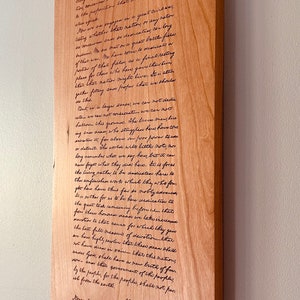 to the proposition that
are equal
Now we are engaged in a great civil war,
testing whether that nation, or any nation
so conceived and so dedicated, can long
endure. We are met on a great battle field
of that war. We have come to dedicate a
portion of that field, as a final resting
place for those who here gave their lives
that that nation might live. It is alto-
gether fitting and proper that we should
do this.
But, in a larger sense, we can not dedi-
cate— we can not consecrate— we can not
hallow— this ground. The brave men, liv-
ing and dead, who struggled here have con-
secrated it, far above our poor power to add
or detract. The world will little note, nor
long remember what we say here, but it can
never forget what they did here. It is for us
the living, rather, to be dedicated here to
the unfinished work which they who fou-
ght here have thus far so nobly advanced.
It is rather for us to be here dedicated to
the great task remaining before us— that
from these honored dead we take increased
devotion to that cause for which they gave
the last full measure of devotion— that
we here highly resolve that these dead shall
not have died in vain— that this nation,
under God, shall have a new birth of free-
dom— and that government of the people,
by the people, for the people, shall not per-
ish from the earth.